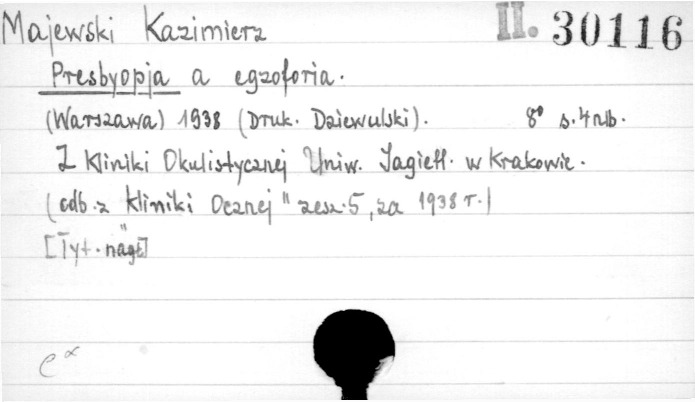 Majewski Kazimierz II. 30116
Presbyopja a egzoforia.
(Warszawa) 1938 (Druk. Dziewulski). 8° s. 4 nlb.
Z Kliniki Okulistycznej Uniw. Jagiell. w Krakowie.
(odb. z Kliniki Ocznej" zesz. 5, za 1938 r.)
[Tyt. nagł]